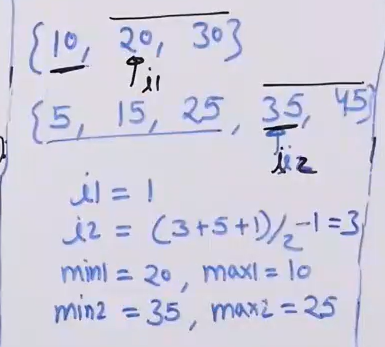 {10, 20, 30}
i1
{5, 15, 25, 35, 45}
i2
i1 = 1
i2 = (3+5+1)/2 -1 = 3
min1 = 20, max1 = 10
min2 = 35, max2 = 25